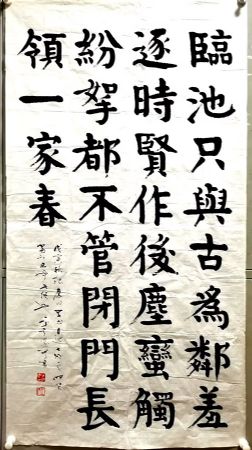 臨池只與古為鄰羞
逐時賢作後塵蠻觸
紛拏都不管閉門長
領一家春